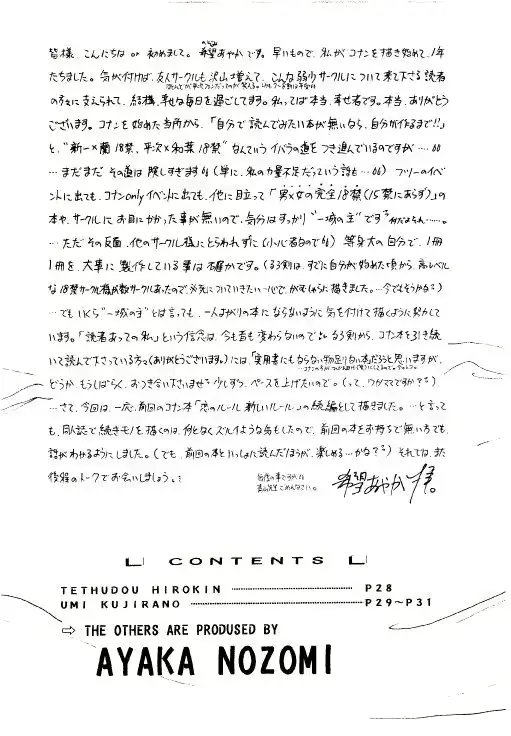 皆様、こんにちは or 初めまして。希望あやかです。早いもので、私がコナンを描き始めて、1年
たちました。気が付けば、友人サークルも沢山増えて、こんな弱少サークルについて来て下さる読者
の方々に支えられて、結構、幸せな毎日を過ごしてます。私っては本当、幸せ者です。本当、ありがとう
ございます。コナンを始めた当所から、「自分で読んでみたい本が無いなら、自分が作るまで!!」
と、"新一×蘭18禁、平次×和葉18禁"なんていうイバラの道をつき進んでいるのですが…
…まだまだその道は険しすぎます(単に、私の力量不足だっていう話も…) フリーのイベ
ントに出ても、コナンonlyイベントに出ても、他に目立って「男×女の完全18禁(15禁にあらず)」の
本や、サークルにお目にかかった事が無いので、気分はすっかり"一城の主"です
…ただその反面、他のサークル様にとらわれずに(小心者なので)等身大の自分で、1冊
1冊を、大事に製作している事は確かです。(るろ剣は、すでに自分が始めた頃から、高レベル
な18禁サークル様が数サークルあったので、必死についていきたい一心で、がむしゃらに描きました。…今でもそうかな?)
…でもいくら"一城の主"とは言っても、一人よがりの本にならないように気を付けて描くように努めて
います。「読者あっての私」という信念は、今も昔も変わらないので るろ剣から、コナン本を引き続
いて読んで下さっている方々(ありがとうございます。)には、「実用書にもならない物足りない本だろうと思いますが、
どうか、もうしばらく、おつき合い下さいませ 少しずつ、ペースを上げたいので。(って、ワガママですか?)
…さて、今回は、一応、前回のコナン本「恋のルール 新しいルール」の続編として描きました。…と言って
も、同人誌で続きモノを描くのは、何となくズルイような気もしたので、前回の本をお持ちで無い方でも、
話がわかるようにしました。(でも、前回の本といっしょに読んだほうが、楽しめる…かな?) それでは、また
後程のトークでお会いしましょう。
希望あやか 拝。
CONTENTS
TETHUDOU HIROKIN ………… P28
UMI KUJIRANO ………… P29〜P31
⇨ THE OTHERS ARE PRODUSED BY
AYAKA NOZOMI